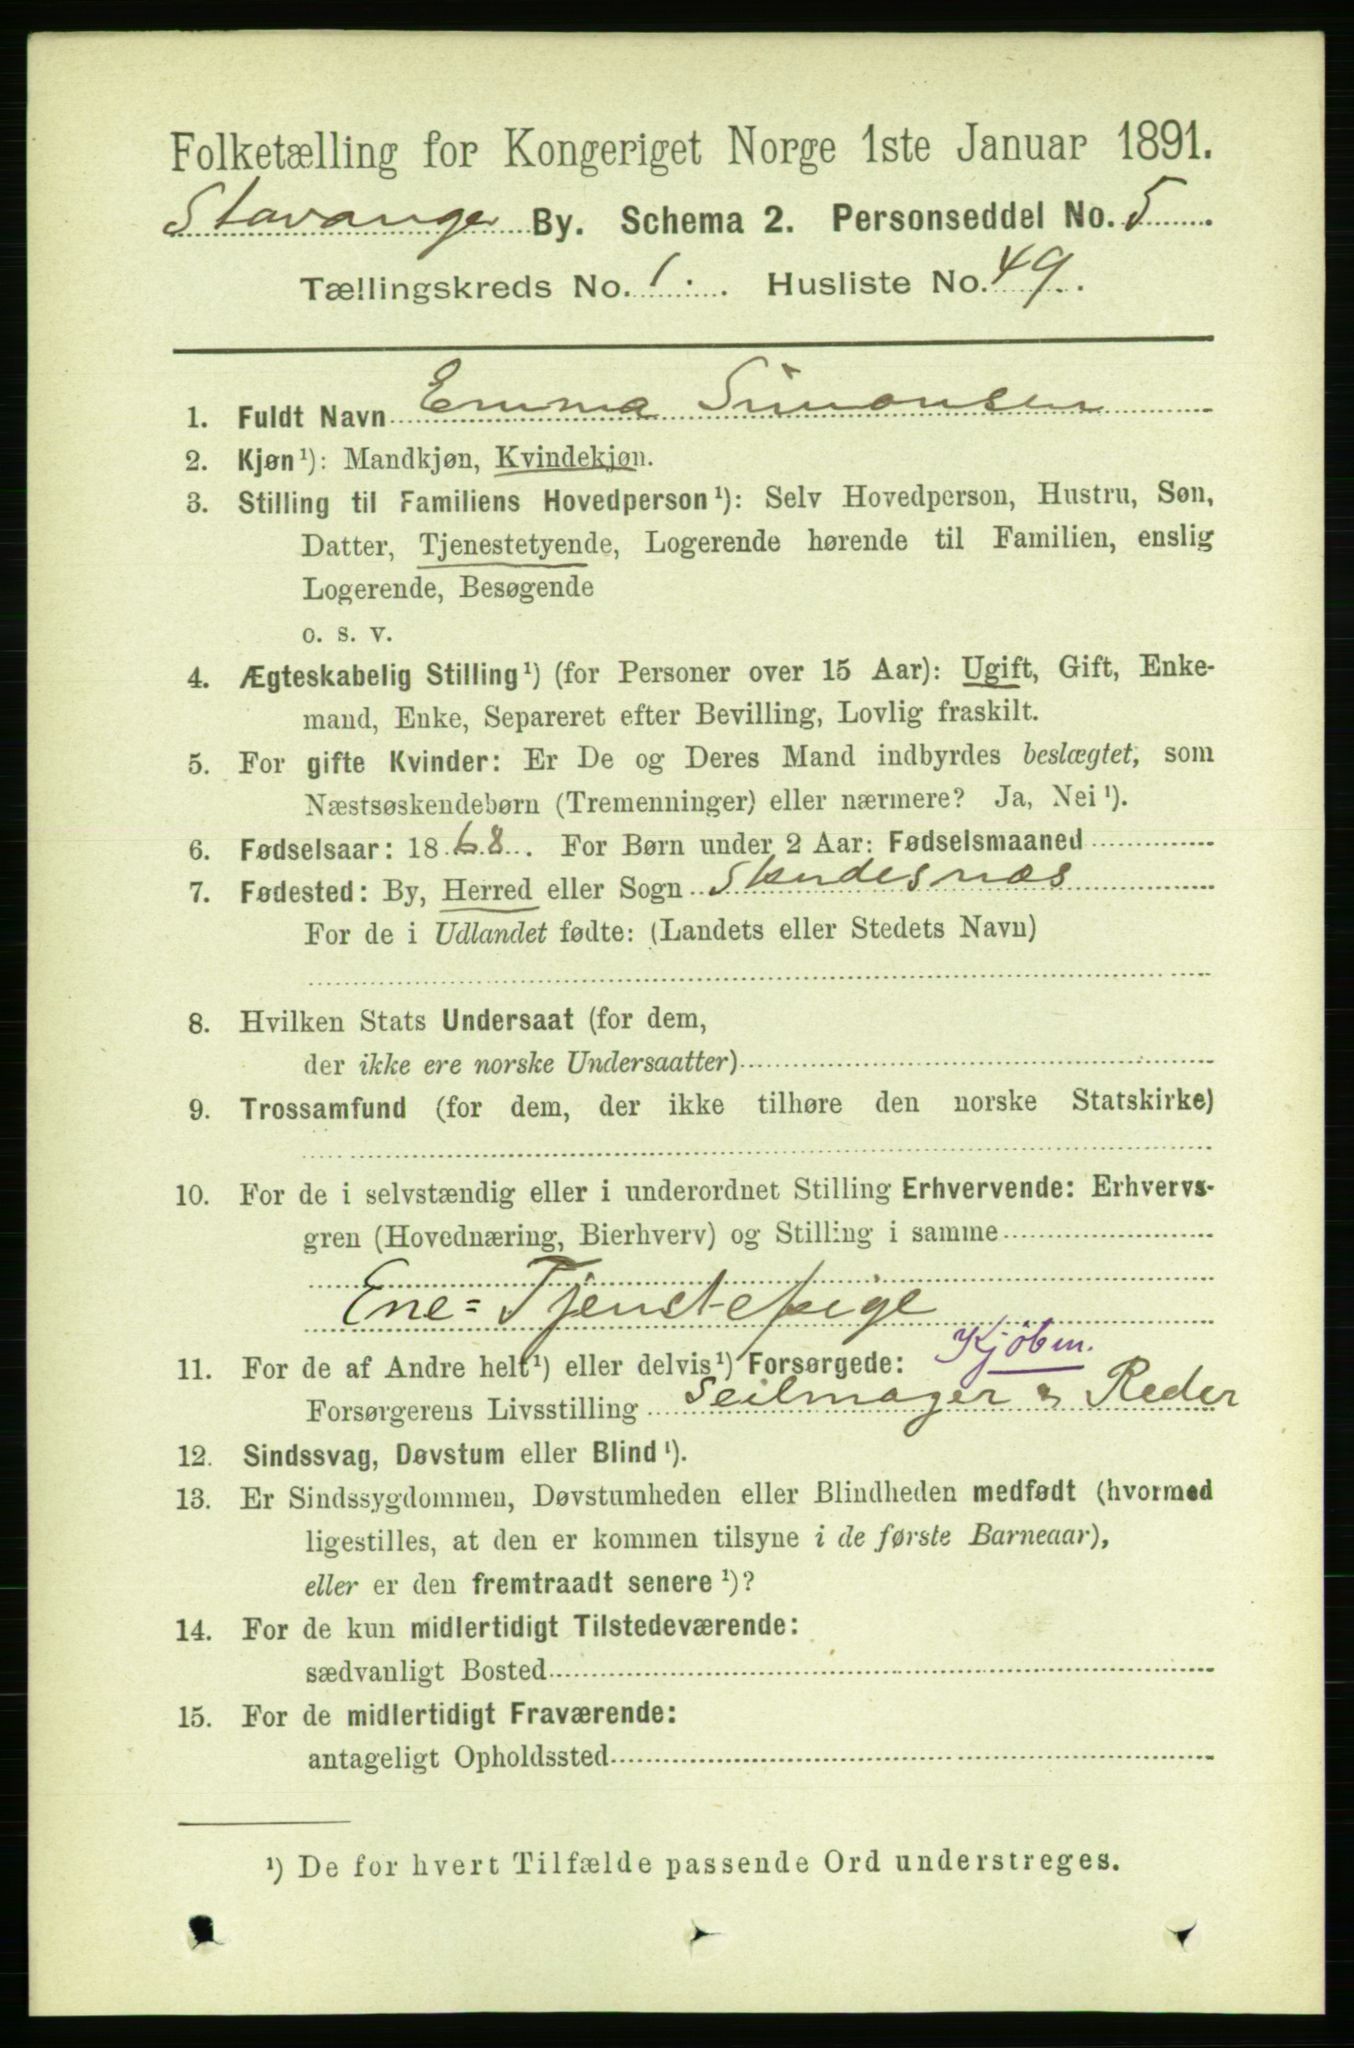 Folketælling for Kongeriget Norge 1ste Januar 1891.
Stavanger By. Schema 2. Personseddel No. 5
Tællingskreds No. 1. Husliste No. 49.
1. Fuldt Navn Emma Simonsen
2. Kjøn ¹): Mandkjøn, Kvindekjøn.
3. Stilling til Familiens Hovedperson ¹): Selv Hovedperson, Hustru, Søn,
Datter, Tjenestetyende, Logerende hørende til Familien, enslig
Logerende, Besøgende
o. s. v.
4. Ægteskabelig Stilling ¹) (for Personer over 15 Aar): Ugift, Gift, Enke-
mand, Enke, Separeret efter Bevilling, Lovlig fraskilt.
5. For gifte Kvinder: Er De og Deres Mand indbyrdes beslægtet, som
Næstsøskendebørn (Tremenninger) eller nærmere? Ja, Nei ¹).
6. Fødselsaar: 1868. For Børn under 2 Aar: Fødselsmaaned
7. Fødested: By, Herred eller Sogn Skudesnæs
For de i Udlandet fødte: (Landets eller Stedets Navn)
8. Hvilken Stats Undersaat (for dem,
der ikke ere norske Undersaatter)
9. Trossamfund (for dem, der ikke tilhøre den norske Statskirke)
10. For de i selvstændig eller i underordnet Stilling Erhvervende: Erhvervs-
gren (Hovednæring, Bierhverv) og Stilling i samme
Ene=Tjenstepige
Kjøbm.
11. For de af Andre helt ¹) eller delvis ¹) Forsørgede:
Forsørgerens Livsstilling Seilmager & Reder
12. Sindssvag, Døvstum eller Blind ¹).
13. Er Sindssygdommen, Døvstumheden eller Blindheden medfødt (hvormed
ligestilles, at den er kommen tilsyne i de første Barneaar),
eller er den fremtraadt senere ¹)?
14. For de kun midlertidigt Tilstedeværende:
sædvanligt Bosted
15. For de midlertidigt Fraværende:
antageligt Opholdssted
¹) De for hvert Tilfælde passende Ord understreges.